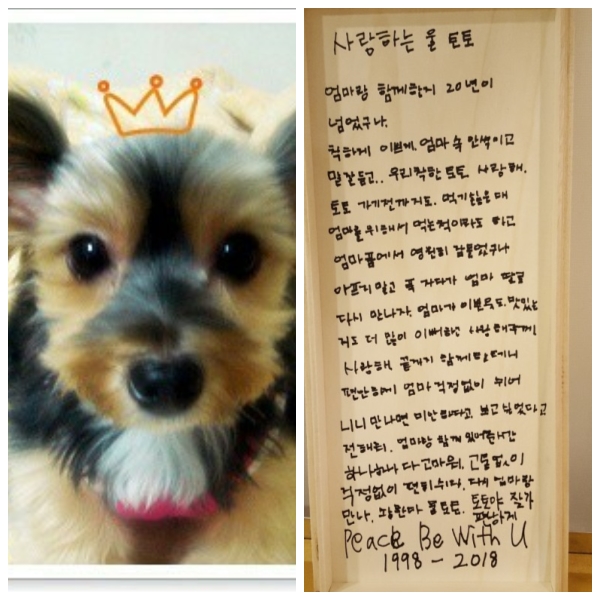 사랑하는 울 토토
엄마랑 함께한지 20년이
넘었구나.
착하게 이쁘게. 엄마 속 안썩이고
말잘듣고.. 우리착한 토토 사랑해.
토토 가기전까지도. 먹기싫은데
엄마를 위해서 먹는척이라도 하고
엄마품에서 영원히 잠들었구나
아프지말고 푹 자다가 엄마 딸로
다시 만나자. 엄마가 이쁜옷도. 맛있는
거도 더 많이 사랑해줄께
사랑해 끝까지 함께
편안하게 엄마걱정없이 쉬어
니니 만나면 미안하다고. 보고싶었다고
전해줘. 엄마랑 함께 시간
하나하나 다 고마워. 고통없이
걱정없이 편히쉬다. 다시 엄마랑
만나. 토토야 잘가
편하게
Peace Be With U
1998 - 2018